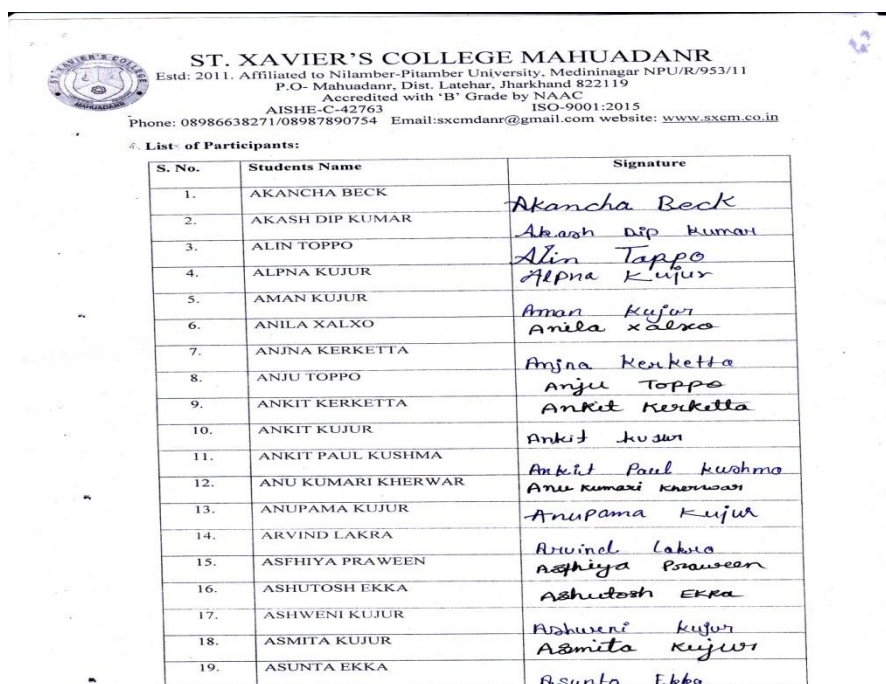 ST. XAVIER'S COLLEGE MAHUADANR
Estd: 2011. Affiliated to Nilamber-Pitamber University, Medininagar NPU/R/953/11
P.O- Mahuadanr, Dist. Latehar, Jharkhand 822119
Accredited with 'B' Grade by NAAC
AISHE-C-42763 ISO-9001:2015
Phone: 08986638271/08987890754 Email:sxcmdanr@gmail.com website: www.sxcm.co.in
List of Participants:
S. No. Students Name Signature
1. AKANCHA BECK Akancha Beck
2. AKASH DIP KUMAR Akash Dip Kumar
3. ALIN TOPPO Alin Toppo
4. ALPNA KUJUR Alpna Kujur
5. AMAN KUJUR Aman Kujur
6. ANILA XALXO Anila Xalxo
7. ANJNA KERKETTA Anjna Kerketta
8. ANJU TOPPO Anju Toppo
9. ANKIT KERKETTA Ankit Kerketta
10. ANKIT KUJUR Ankit Kujur
11. ANKIT PAUL KUSHMA Ankit Paul Kushma
12. ANU KUMARI KHERWAR Anu Kumari Kherwar
13. ANUPAMA KUJUR Anupama Kujur
14. ARVIND LAKRA Arvind Lakra
15. ASFHIYA PRAWEEN Asfhiya Praween
16. ASHUTOSH EKKA Ashutosh Ekka
17. ASHWENI KUJUR Ashweni Kujur
18. ASMITA KUJUR Asmita Kujur
19. ASUNTA EKKA Asunta Ekka